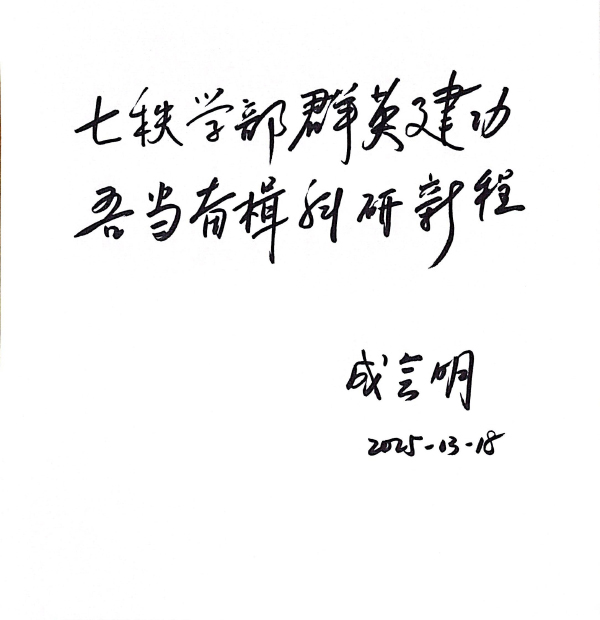 七秩学部群英建功
吾当奋楫科研新程
成会明
2025-03-18